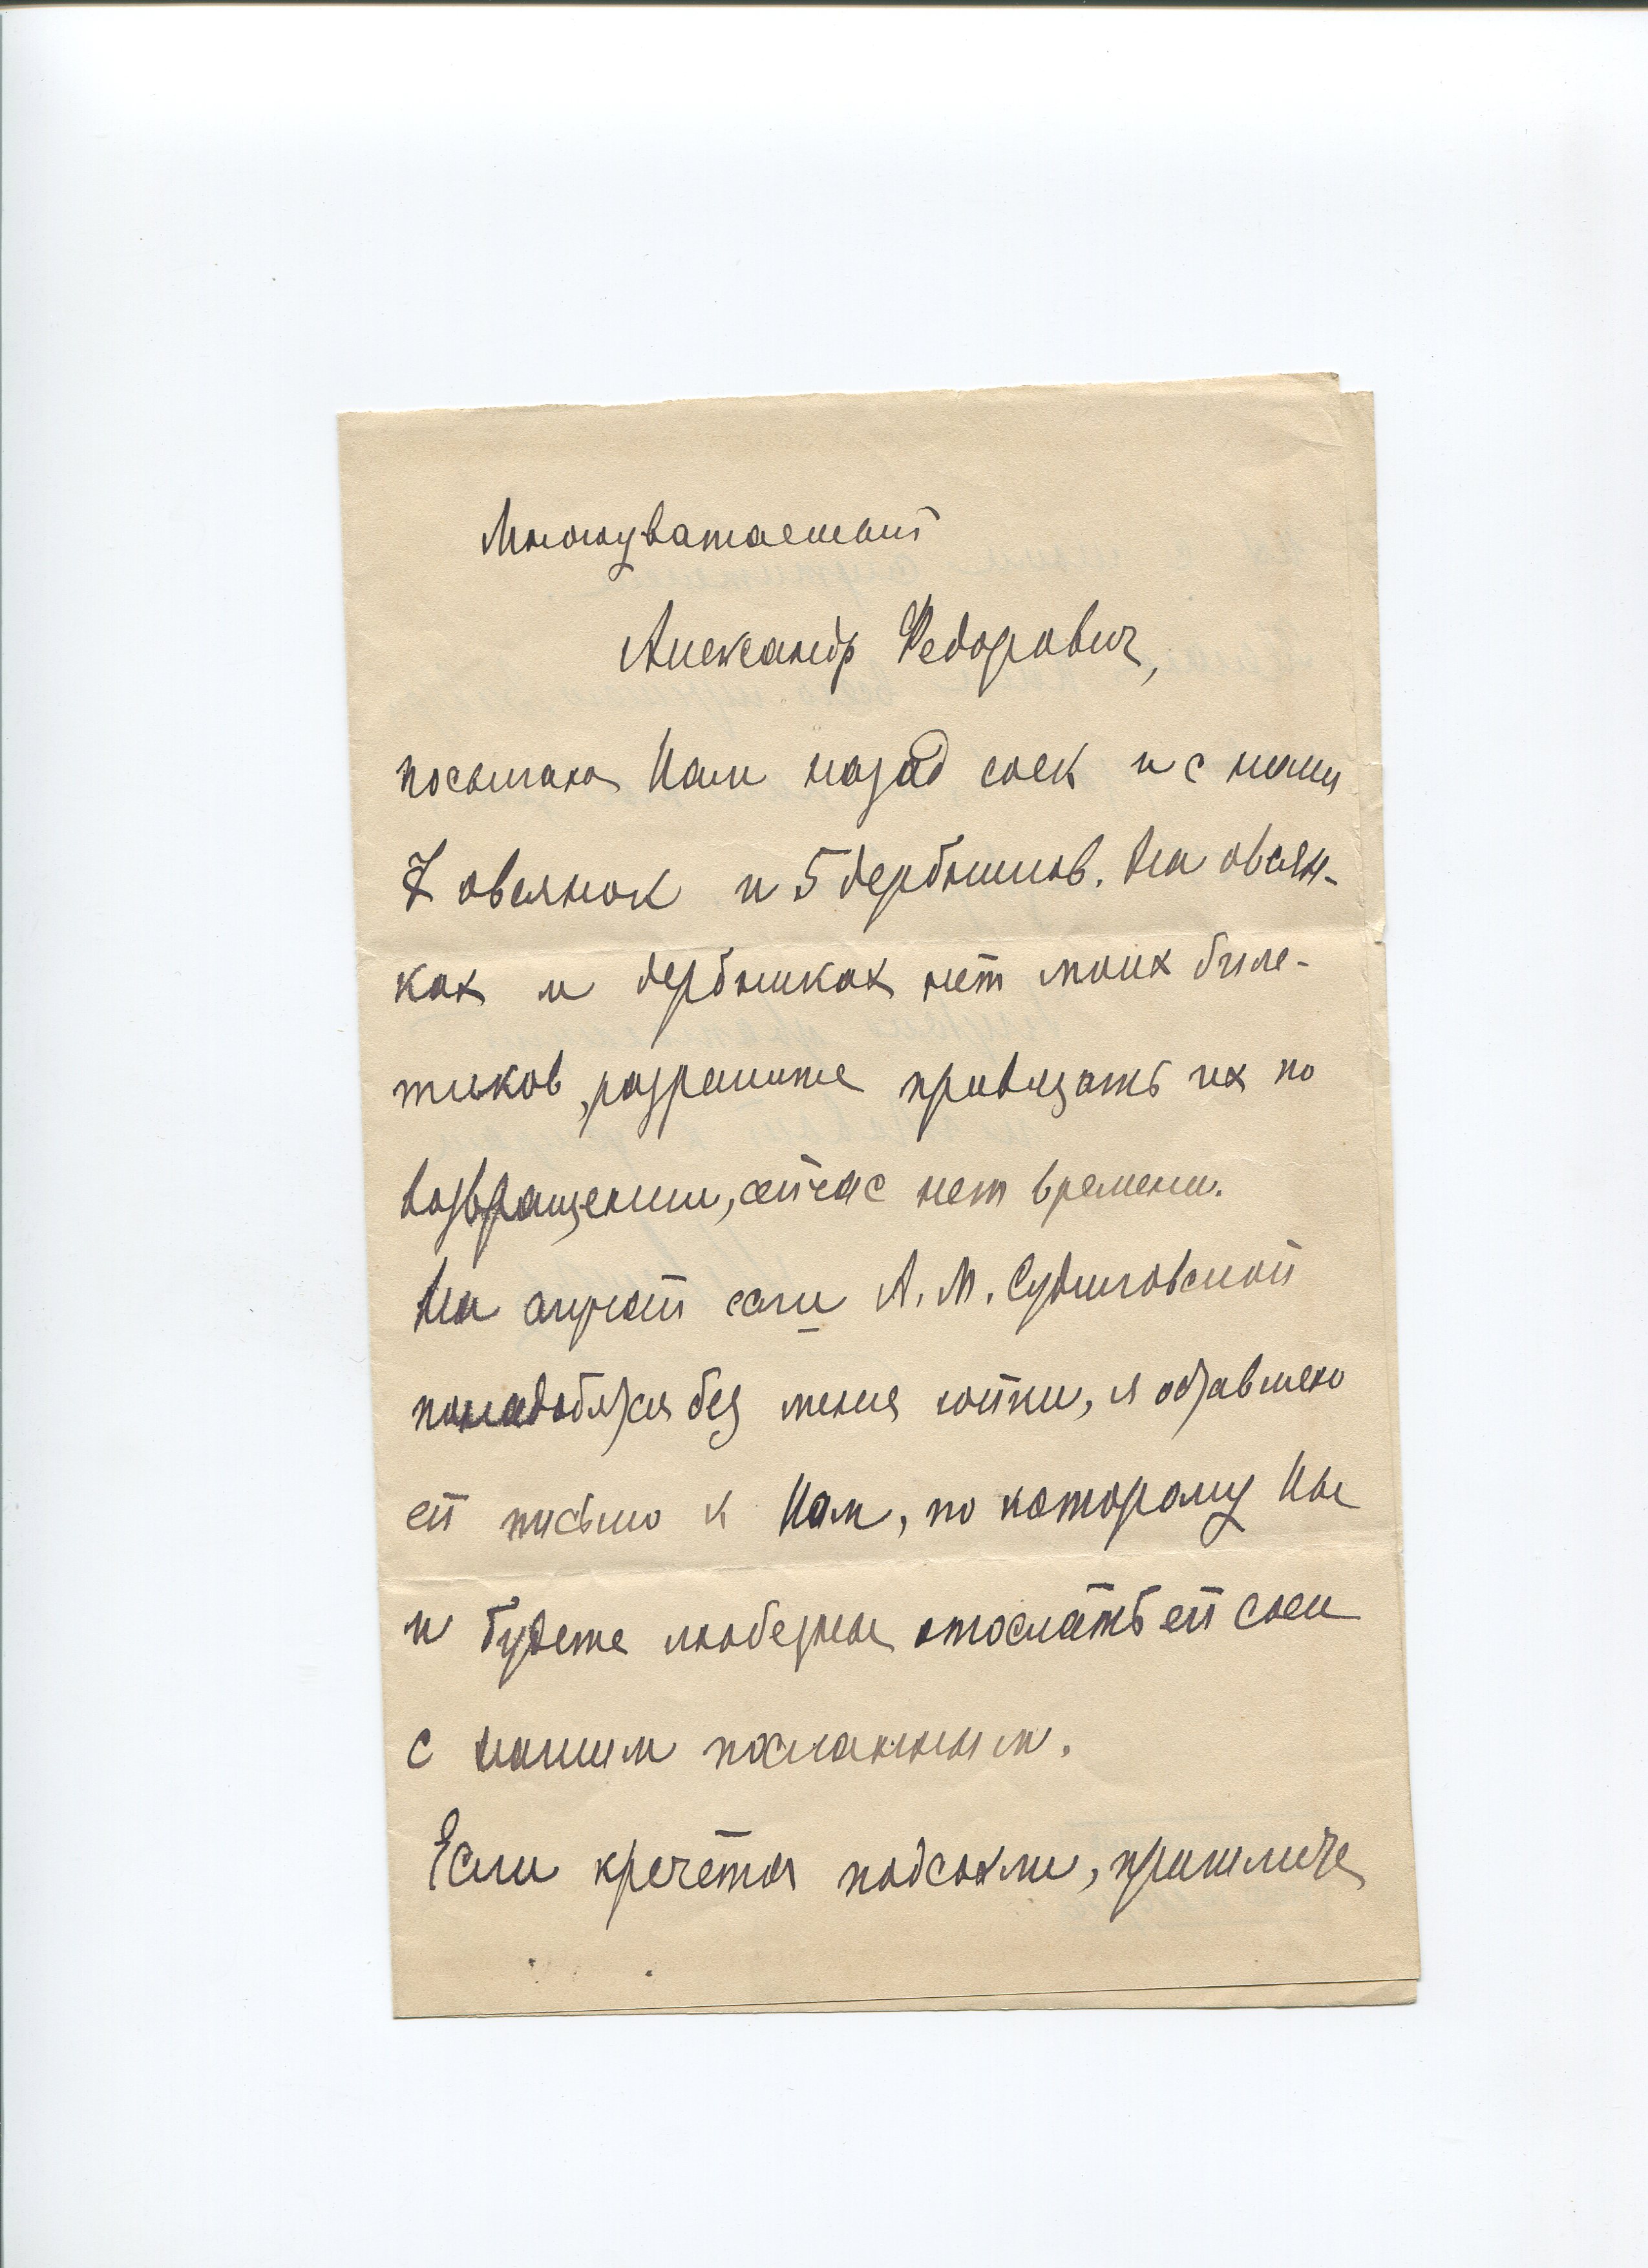 Многоуважаемый
Александр Федорович,
посылаю Вам назад соек и с ними
7 овсянок и 5 дербников. На овсян-
ках и дербниках нет моих биле-
тиков, разрешите привязать их по
возвращении, сейчас нет времени.
На случай если А. М. Судиловской
понадобятся без меня сойки, я оставляю
ей письмо к Вам, по которому Вы
и будете любезны отослать ей соек
с нашим посланным.
Если кречета подсохли, пришлите